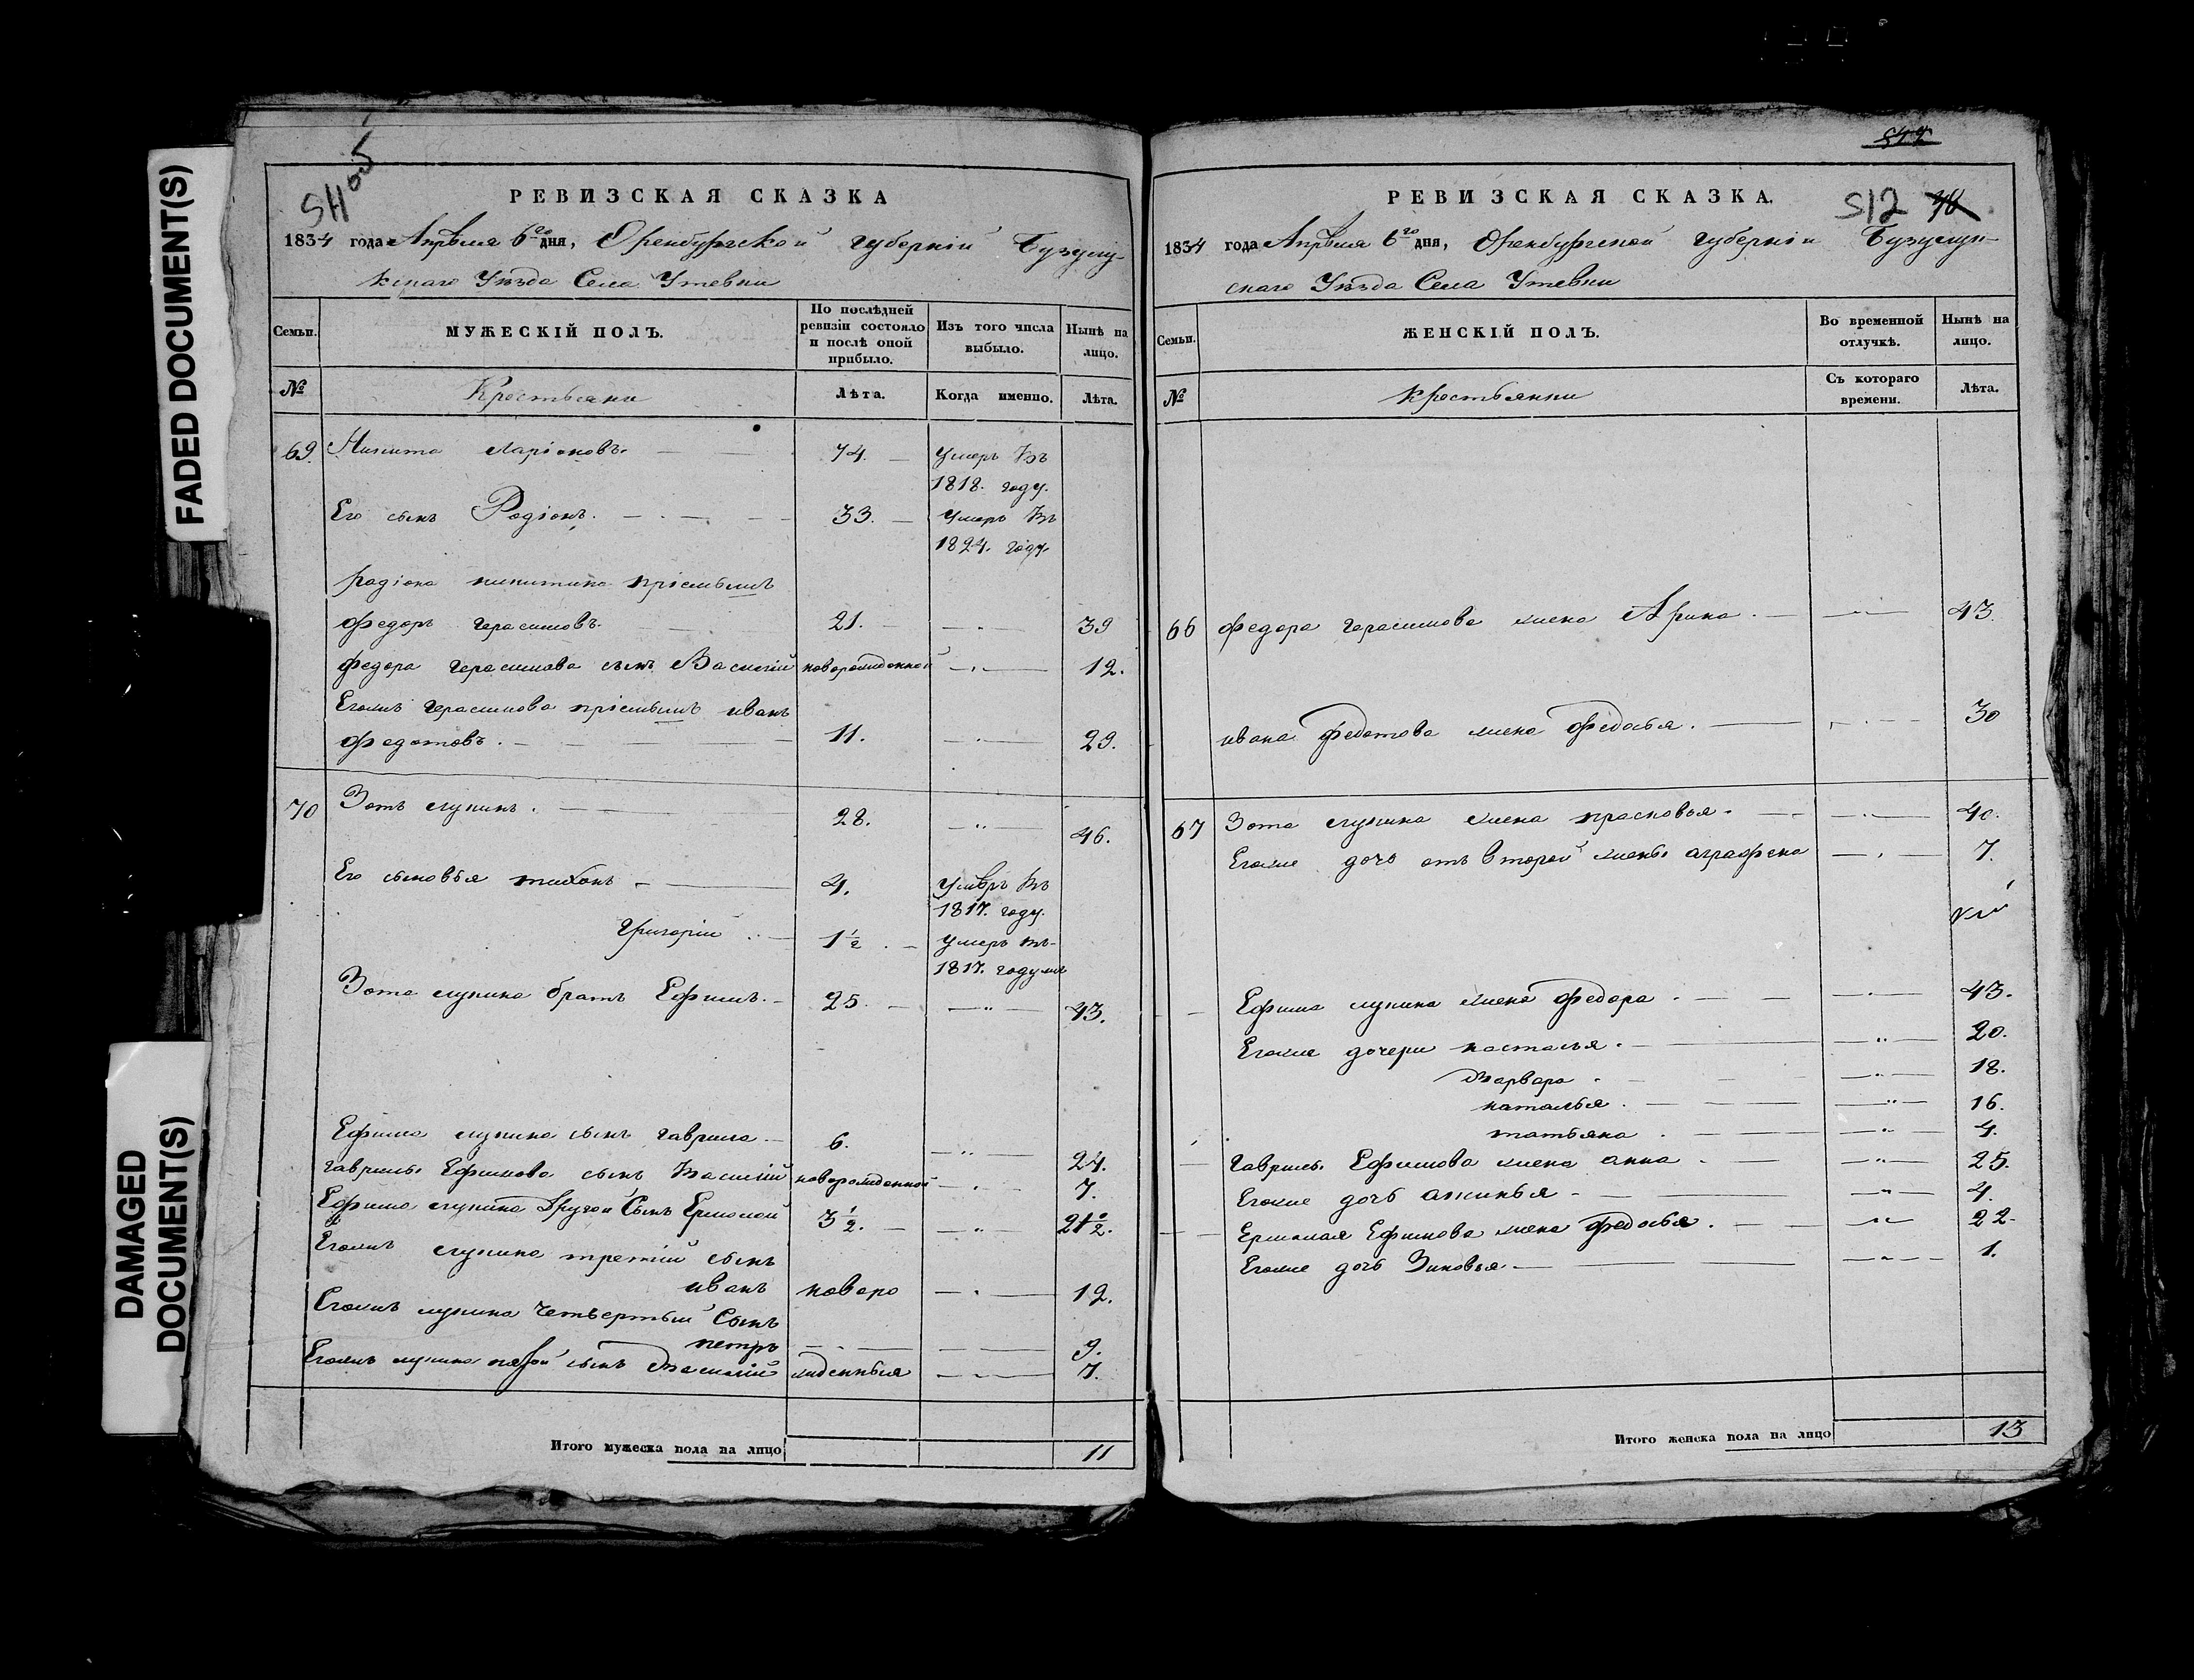 FADED DOCUMENT(S)
DAMAGED
DOCUMENT(S)
РЕВИЗСКАЯ СКАЗКА
1834 года Апреля 6го дня, Оренбургской губерніи Бузулу-
кскаго Уѣзда Села Утевки
Семьи.
МУЖЕСКІЙ ПОЛЪ.
По послѣдней
ревизіи состояло
и послѣ оной
прибыло.
Изъ того числа
выбыло.
Нынѣ на
лицо.
№
Крестьяни
Лѣта.
Когда именно.
Лѣта.
69. Никита Ларіоновъ. 74. Умеръ Въ
1818. году.
Его сынъ Родіонъ. 33. Умеръ Въ
1824. году.
Радіона никитина пріемышъ
федоръ герасимовъ. 21. 39
федора герасимова сынъ Василій новорожденной 12.
Егожъ герасимова пріемышъ иванъ
федотовъ. 11. 29.
70 Зотъ лупинъ. 28. 46.
Его сыновья тихонъ 4. Умеръ Въ
1817. году.
Григорій 1½ умеръ въ
1817. году
Зота лупина братъ Ефимъ. 25. 43.
Ефима лупина сынъ гаврила 6. 24.
гаврилы Ефимова сынъ Василій новорожденной 7.
Ефима лупина Другой Сынъ Ермолай 3½. 21½.
Егожъ лупина третій сынъ
иванъ новоро 12.
Егожъ лупина Четвертый Сынъ
петръ 9.
Егожъ лупина пятой сынъ Василій жденныя 7.
Итого мужеска пола на лицо 11
512
РЕВИЗСКАЯ СКАЗКА.
1834 года Апреля 6го дня, Оренбургской губерніи Бузулук-
скаго Уѣзда Села Утевки
Семьи.
ЖЕНСКІЙ ПОЛЪ.
Во временной
отлучкѣ.
Нынѣ на
лицо.
№
крестьянки
Съ котораго
времени.
Лѣта.
66 федора герасимова жена Арина. 43.
ивана федотова жена федосья. 30
67 Зота лупина жена прасковья. 40.
Егоже дочь отъ Второй жены аграфена 7.
Ефима лупина жена федора. 43.
Егоже дочери настасья. 20.
Варвара 18.
наталья. 16.
татьяна. 4.
Гаврилы Ефимова жена анна 25.
Егоже дочь аксинья 4.
Ермолая Ефимова жена федосья. 22.
Егоже дочь Зиновья 1.
Итого женска пола на лицо 13